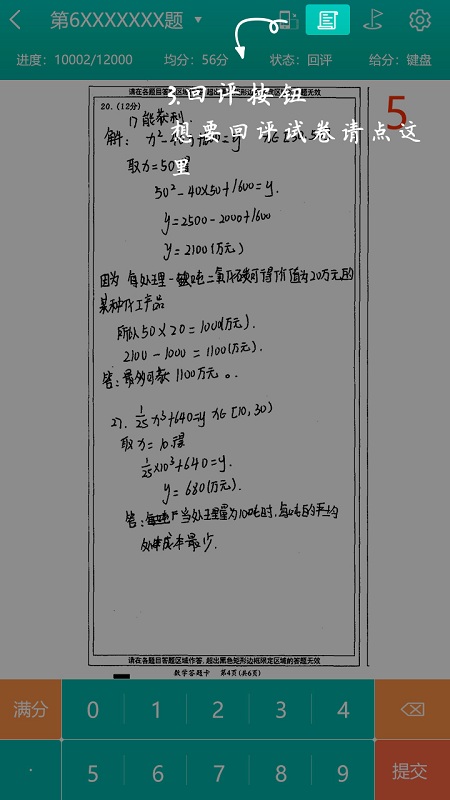 第6XXXXXXX题
进度：10002/12000 均分：56分 状态：回评 给分：键盘
请在各题目答题区域作答，超出黑色矩形边框限定区域的答案无效
3.回评按钮
想要回评试卷请点这
里
5
20.（12分）
1) 能获利.
解：
取x=50得
50²-40×50+1600=y.
y=2500-2000+1600
y=2100(万元)
因为 每处理一吨二氧化碳可得价值为20万元的
某种化工产品
所以50×20=1000(万元).
2100-1000=1100(万元).
答：最多可获1100万元。
27. 1/25 x³+640=y x∈[10,30)
取x=10.得
1/25×10³+640=y.
y=680(万元).
答：当处理量为10吨时,每吨的平均
处理成本最少.
请在各题目答题区域作答，超出黑色矩形边框限定区域的答案无效
数学答题卡 第4页(共6页)
满分 0 1 2 3 4
. 5 6 7 8 9 提交